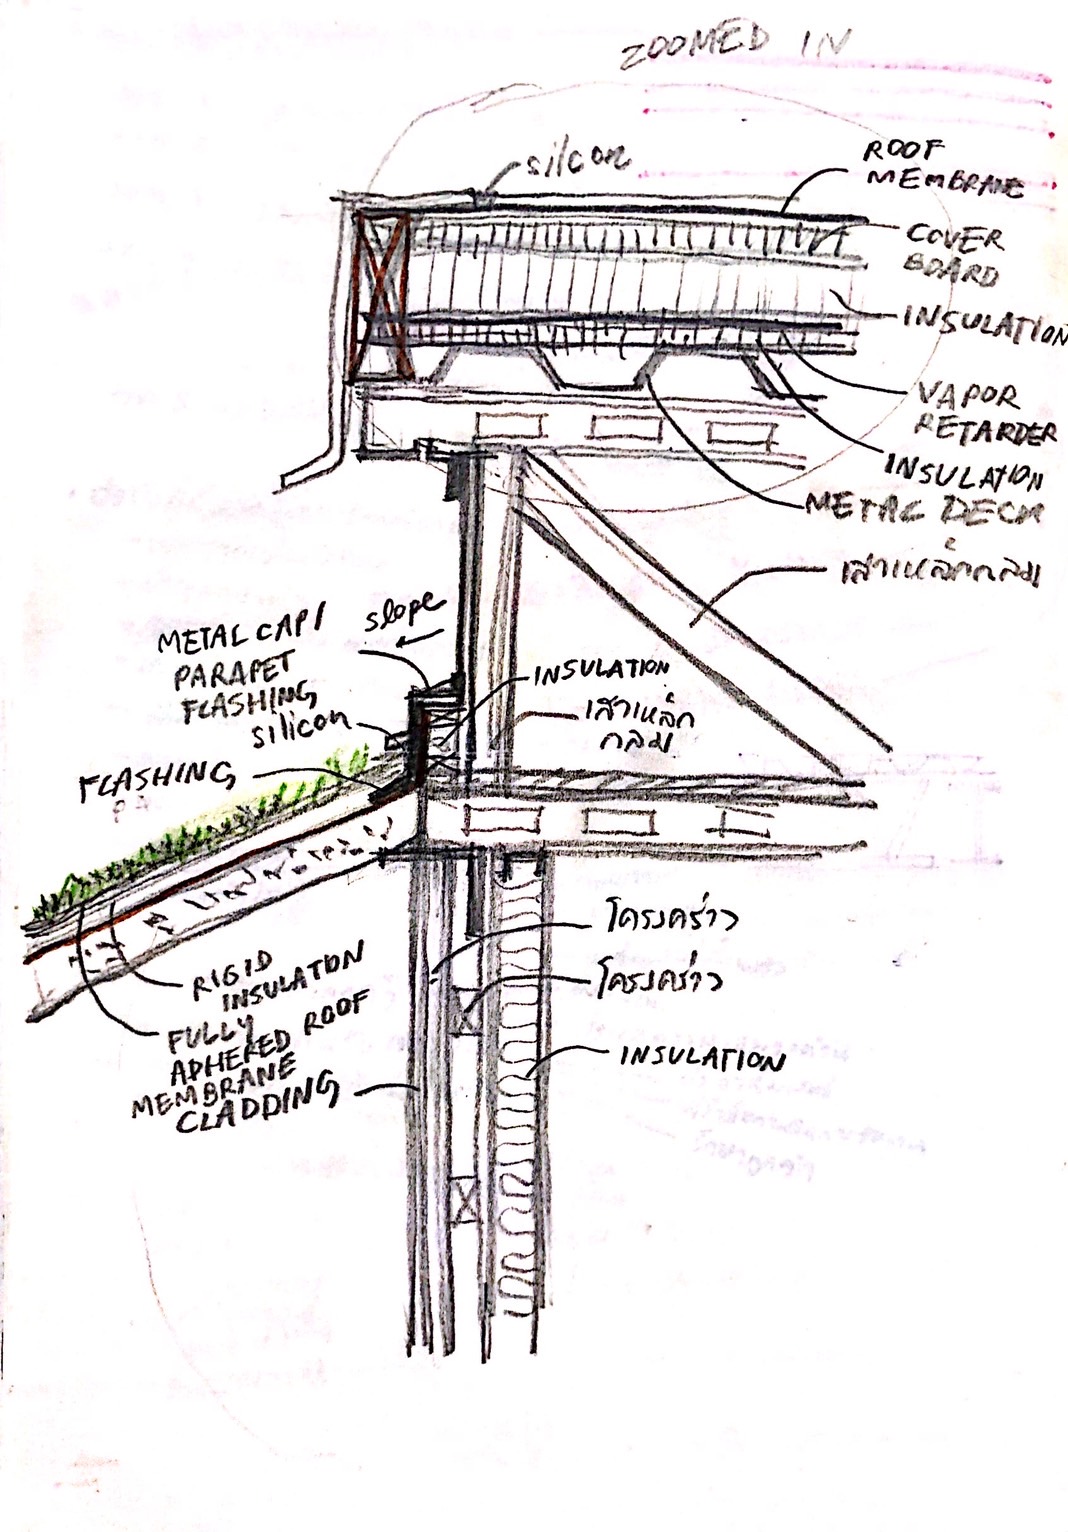 ZOOMED IN
silcon
ROOF
MEMBRANE
COVER
BOARD
INSULATION
VAPOR
RETARDER
INSULATION
METAL DECK
เสาเหล็กกลม
slope
METAL CAP/
PARAPET
FLASHING
silicon
INSULATION
เสาเหล็ก
กลม
FLASHING
โครงคร่าว
โครงคร่าว
INSULATION
RIGID
INSULATION
FULLY
ADHERED ROOF
MEMBRANE
CLADDING